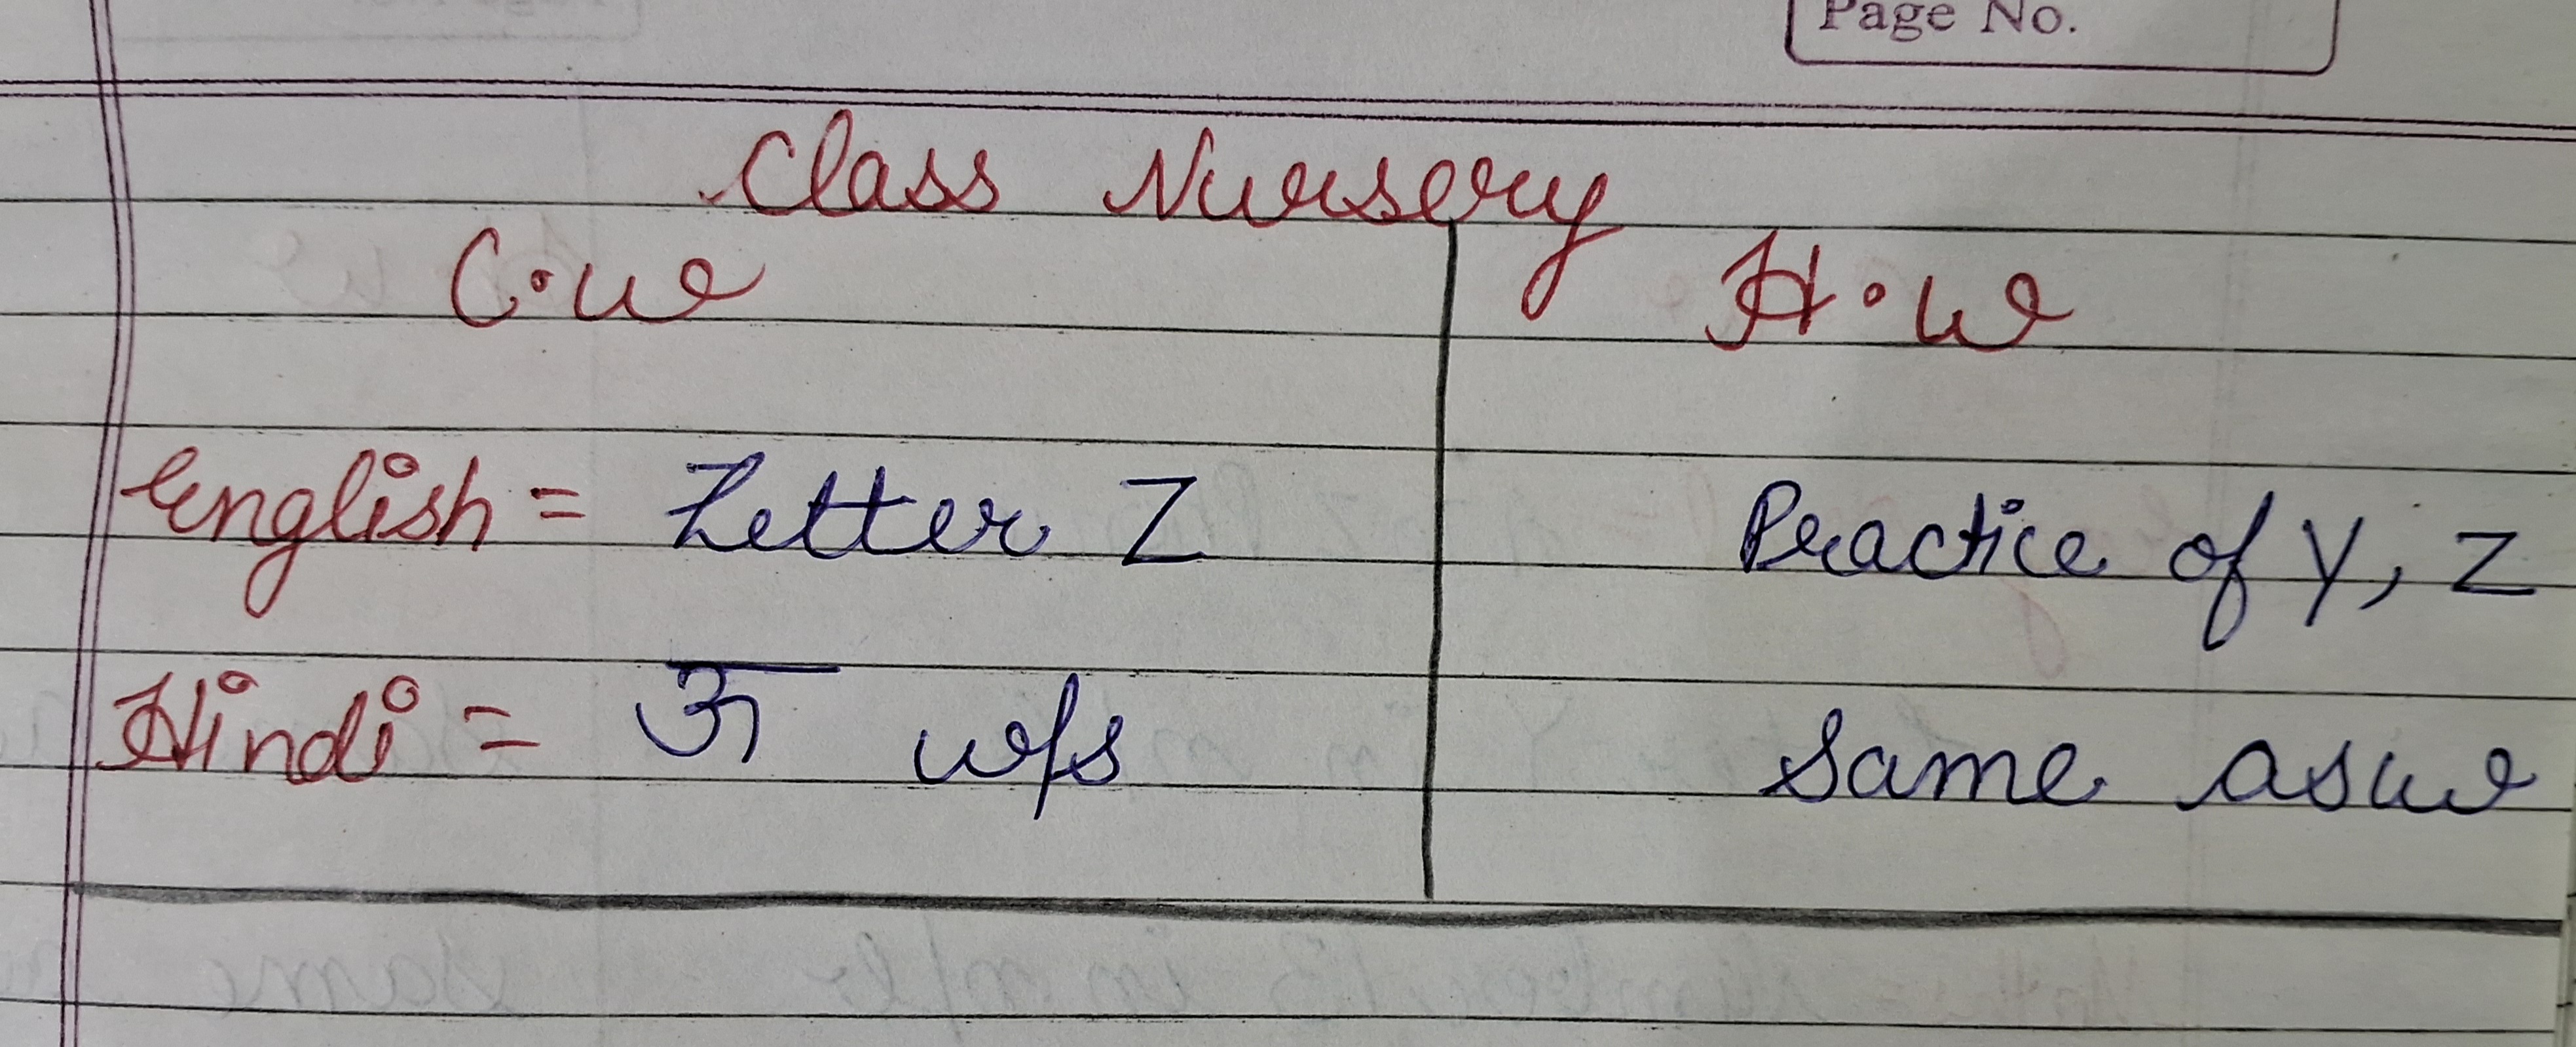 Page No.
Class Nursery
C.w H.w
English = Letter Z Practice of Y, Z
Hindi = अ w/s Same as cw